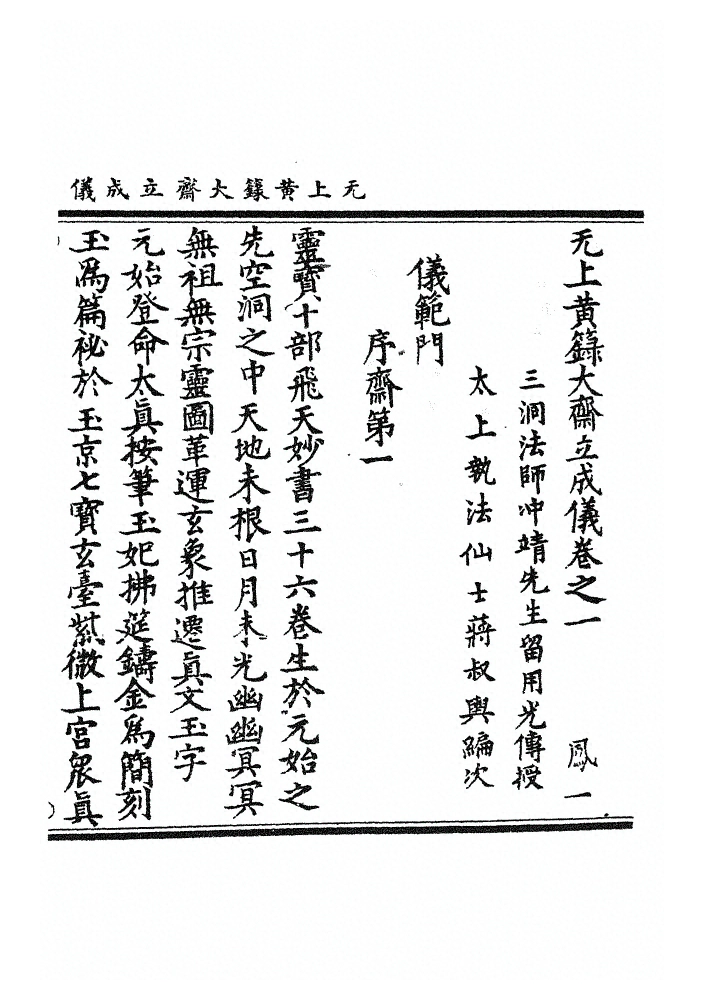 无上黃籙大齋立成儀
无上黃籙大齋立成儀卷之一 鳳一
三洞法師冲靖先生留用光傳授
太上執法仙士蔣叔輿編次
儀範門
序齋第一
靈寶十部飛天妙書三十六卷生於元始之
先空洞之中天地未根日月未光幽幽冥冥
無祖無宗靈圖革運玄象推遷眞文玉字
元始登命太眞按筆玉妃拂筵鑄金爲簡刻
玉爲篇祕於玉京七寶玄臺紫微上宮衆眞